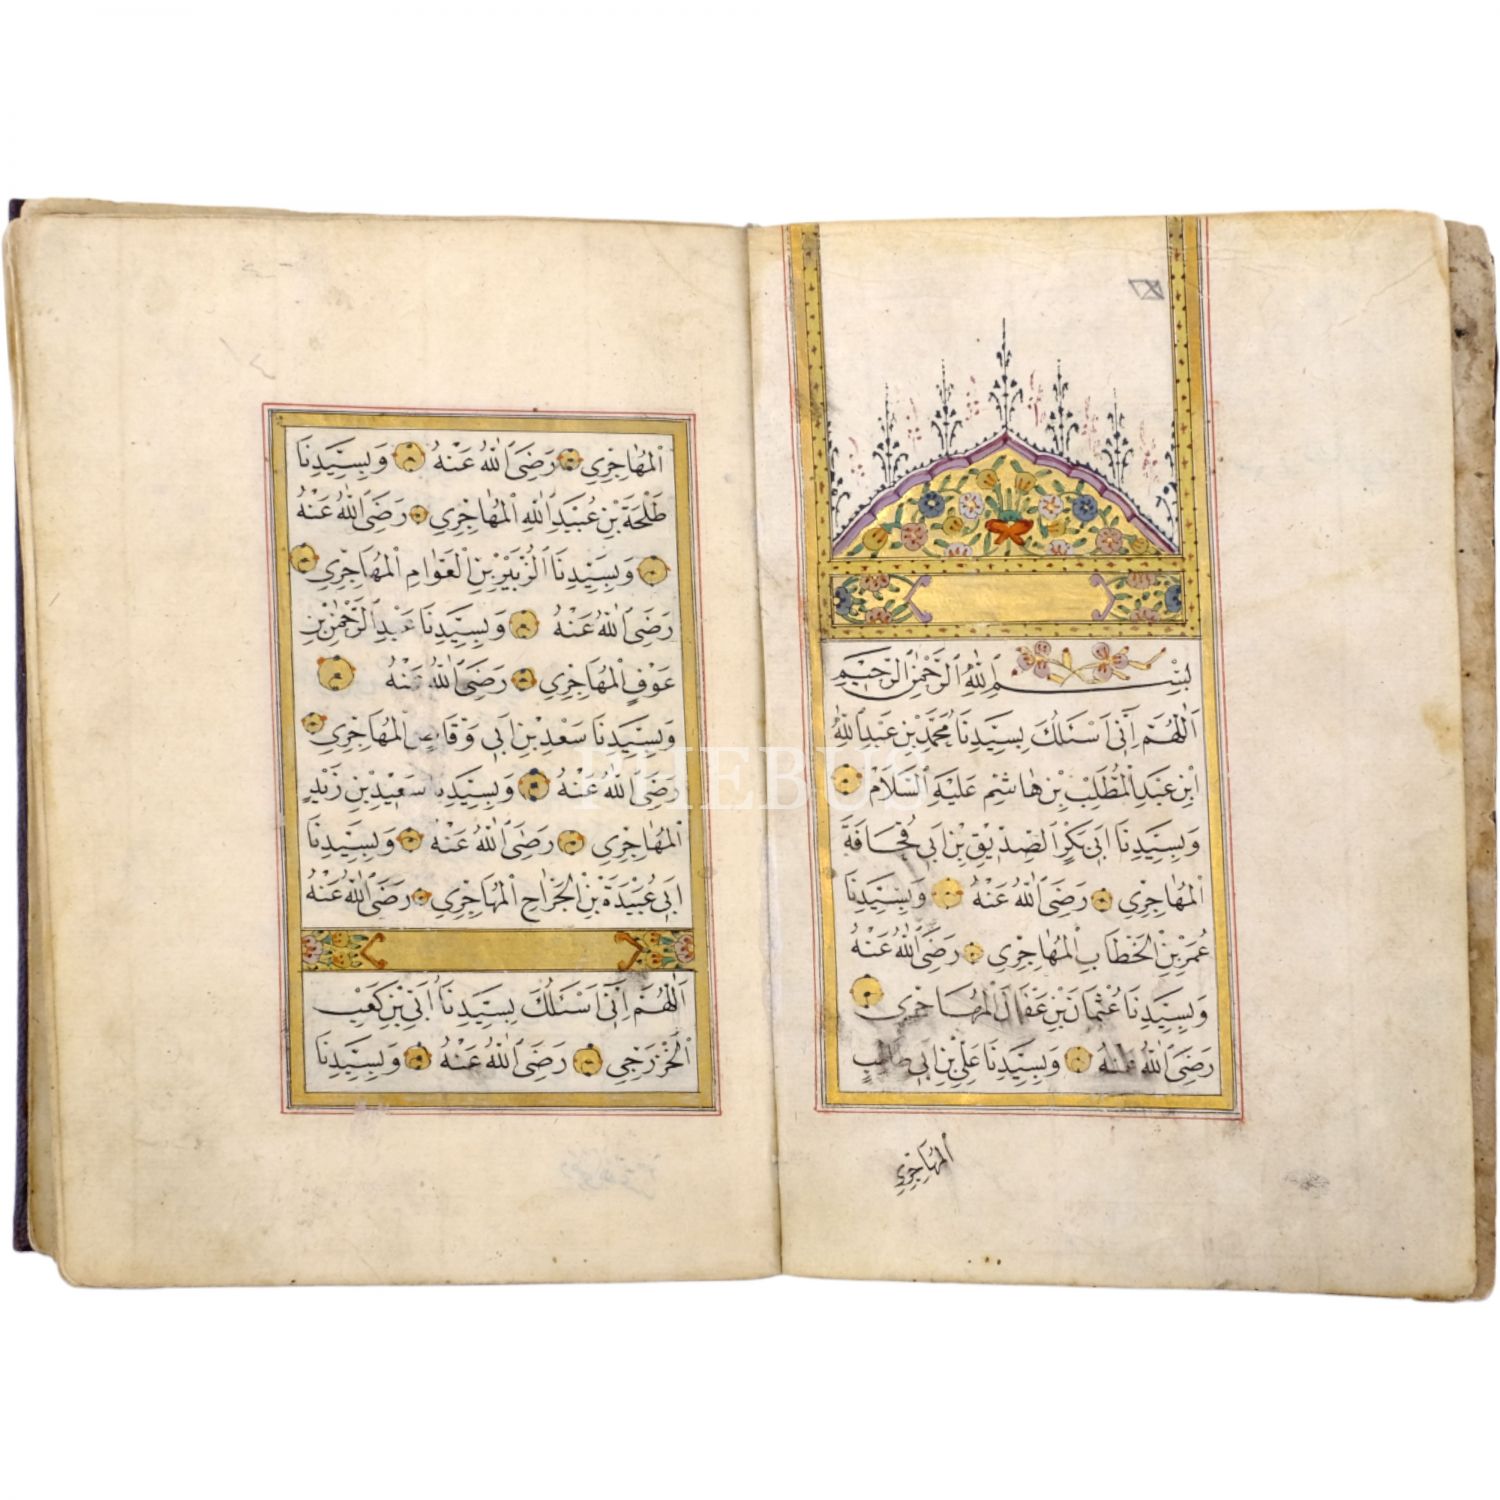 بِسْمِ اللّٰهِ الرَّحْمٰنِ الرَّحِيمِ
اَللّٰهُمَّ اِنِّى اَسْئَلُكَ بِسَيِّدِنَا مُحَمَّدِ بْنِ عَبْدِ اللّٰهِ
ابْنِ عَبْدِ الْمُطَّلِبِ بْنِ هَاشِمٍ عَلَيْهِ السَّلَامُ
وَبِسَيِّدِنَا اَبِى بَكْرٍ الصِّدِّيقِ بْنِ اَبِى قُحَافَةَ
الْمُهَاجِرِي رَضِىَ اللّٰهُ عَنْهُ وَبِسَيِّدِنَا
عُمَرَ بْنِ الْخَطَّابِ الْمُهَاجِرِي رَضِىَ اللّٰهُ عَنْهُ
وَبِسَيِّدِنَا عُثْمَانَ بْنِ عَفَّانَ الْمُهَاجِرِي
رَضِىَ اللّٰهُ عَنْهُ وَبِسَيِّدِنَا عَلِىِّ بْنِ اَبِى طَالِبٍ
الْمُهَاجِرِي
الْمُهَاجِرِي رَضِىَ اللّٰهُ عَنْهُ وَبِسَيِّدِنَا
طَلْحَةَ بْنِ عُبَيْدِ اللّٰهِ الْمُهَاجِرِي رَضِىَ اللّٰهُ عَنْهُ
وَبِسَيِّدِنَا الزُّبَيْرِ بْنِ الْعَوَامِ الْمُهَاجِرِي
رَضِىَ اللّٰهُ عَنْهُ وَبِسَيِّدِنَا عَبْدِ الرَّحْمٰنِ بْنِ
عَوْفٍ الْمُهَاجِرِي رَضِىَ اللّٰهُ عَنْهُ
وَبِسَيِّدِنَا سَعْدِ بْنِ اَبِى وَقَّاصٍ الْمُهَاجِرِي
رَضِىَ اللّٰهُ عَنْهُ وَبِسَيِّدِنَا سَعِيدِ بْنِ زَيْدٍ
الْمُهَاجِرِي رَضِىَ اللّٰهُ عَنْهُ وَبِسَيِّدِنَا
اَبِى عُبَيْدَةَ بْنِ الْجَرَّاحِ الْمُهَاجِرِي رَضِىَ اللّٰهُ عَنْهُ
اَللّٰهُمَّ اِنِّى اَسْئَلُكَ بِسَيِّدِنَا اُبَىِّ بْنِ كَعْبٍ
الْخَزْرَجِي رَضِىَ اللّٰهُ عَنْهُ وَبِسَيِّدِنَا
PHEBUS